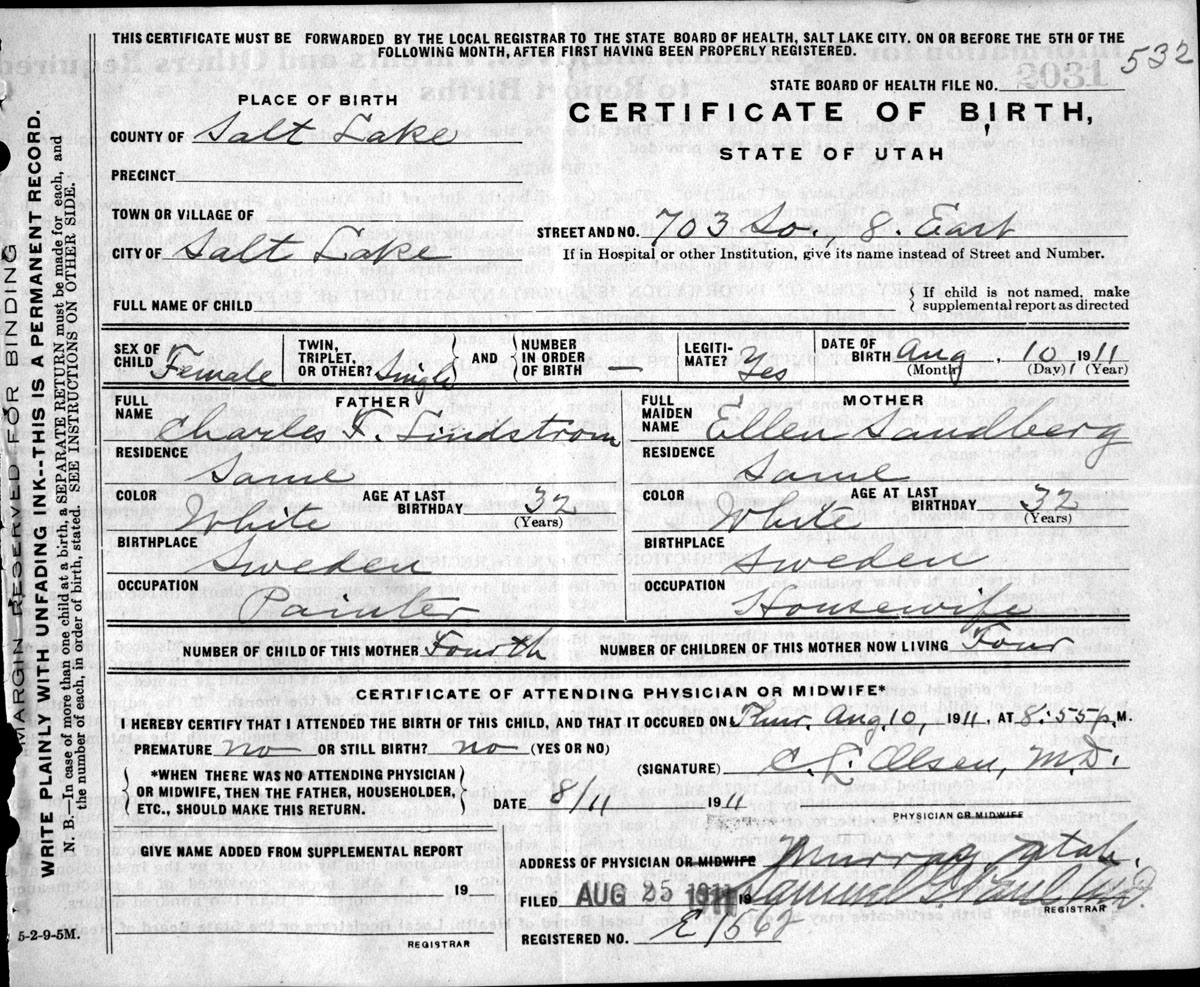 THIS CERTIFICATE MUST BE FORWARDED BY THE LOCAL REGISTRAR TO THE STATE BOARD OF HEALTH, SALT LAKE CITY, ON OR BEFORE THE 5TH OF THE
FOLLOWING MONTH, AFTER FIRST HAVING BEEN PROPERLY REGISTERED.
532
2031
STATE BOARD OF HEALTH FILE NO.
PLACE OF BIRTH
CERTIFICATE OF BIRTH,
STATE OF UTAH
COUNTY OF Salt Lake
PRECINCT
TOWN OR VILLAGE OF
STREET AND NO. 703 So., 8. East
CITY OF Salt Lake
If in Hospital or other Institution, give its name instead of Street and Number.
FULL NAME OF CHILD
If child is not named, make
supplemental report as directed
SEX OF CHILD Female
TWIN, TRIPLET, OR OTHER? Single
AND
NUMBER IN ORDER OF BIRTH —
LEGITI-MATE? Yes
DATE OF BIRTH Aug, 10 1911
(Month) (Day) (Year)
FATHER
FULL NAME Charles F. Lindstrom
RESIDENCE Same
COLOR White
AGE AT LAST BIRTHDAY 32
(Years)
BIRTHPLACE Sweden
OCCUPATION Painter
MOTHER
FULL MAIDEN NAME Ellen Sandberg
RESIDENCE Same
COLOR White
AGE AT LAST BIRTHDAY 32
(Years)
BIRTHPLACE Sweden
OCCUPATION Housewife
NUMBER OF CHILD OF THIS MOTHER Fourth
NUMBER OF CHILDREN OF THIS MOTHER NOW LIVING Four
CERTIFICATE OF ATTENDING PHYSICIAN OR MIDWIFE*
I HEREBY CERTIFY THAT I ATTENDED THE BIRTH OF THIS CHILD, AND THAT IT OCCURED ON Thur. Aug 10, 1911, AT 8:55 P. M.
PREMATURE no OR STILL BIRTH? no (YES OR NO)
*WHEN THERE WAS NO ATTENDING PHYSICIAN
OR MIDWIFE, THEN THE FATHER, HOUSEHOLDER,
ETC., SHOULD MAKE THIS RETURN.
(SIGNATURE) C. L. Olsen, M.D.
DATE 8/11 1911
PHYSICIAN OR MIDWIFE
GIVE NAME ADDED FROM SUPPLEMENTAL REPORT
19
REGISTRAR
ADDRESS OF PHYSICIAN OR MIDWIFE Murray, Utah.
FILED AUG 25 1911 19 Samuel G. Paul M.D.
REGISTRAR
REGISTERED NO. E 156
5-2-9-5M.
MARGIN RESERVED FOR BINDING
WRITE PLAINLY WITH UNFADING INK--THIS IS A PERMANENT RECORD.
N. B.—In case of more than one child at a birth, a SEPARATE RETURN must be made for each, and
the number of each, in order of birth, stated. SEE INSTRUCTIONS ON OTHER SIDE.